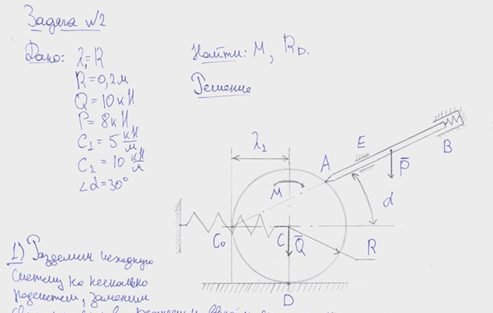 Задача №2
Дано:
λ₁=R
R=0,2м
Q=10кН
P=8кН
C₁=5 кН/м
C₂=10 кН/м
∠α=30°
Найти: M, R_D.
Решение
λ₁
A
E
B
P̄
α
M
C₀
C
Q̄
R
D
1) Разделим исходную
систему на несколько
подсистем, заменим